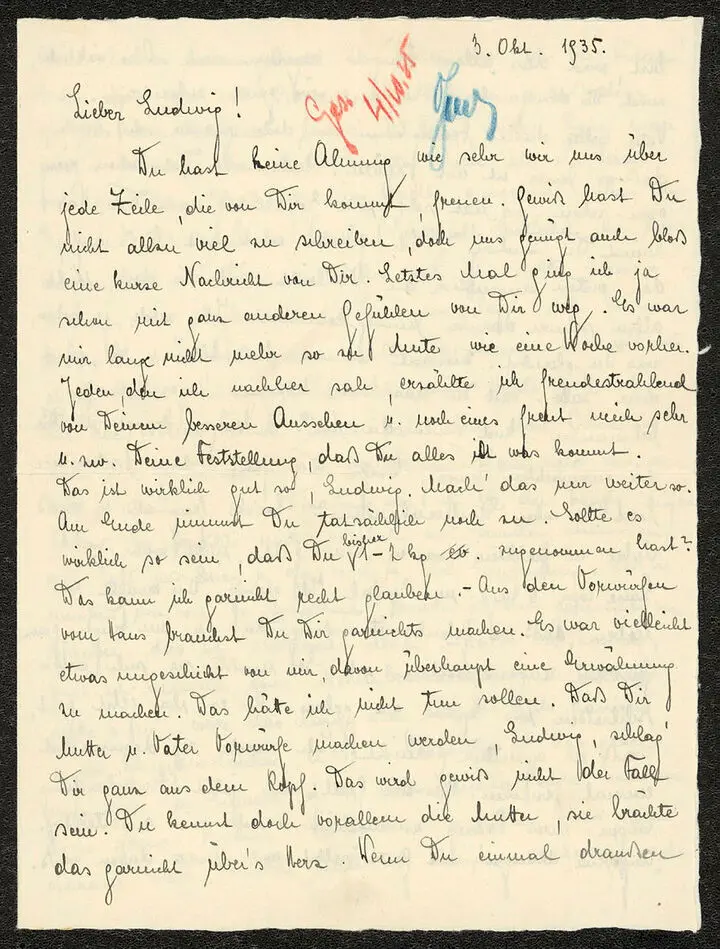 3. Okt. 1935.
Ges. 4/10.35
Lieber Ludwig!
Du hast keine Ahnung, wie sehr wir uns über
jede Zeile, die von Dir kommt, freuen. Gewiß hast Du
nicht allzu viel zu schreiben, doch uns genügt auch bloß
eine kurze Nachricht von Dir. Letztes Mal ging ich ja
schon mit ganz anderen Gefühlen von Dir weg. Es war
mir lange nicht mehr so zu Mute wie eine Woche vorher.
Jeden, den ich nachher sah, erzählte ich freudestrahlend
von Deinem besseren Aussehen u. noch eines freut mich sehr
u. zw. Deine Feststellung, daß Du alles ißt was kommt.
Das ist wirklich gut so, Ludwig. Mach' das nur weiter so.
Am Ende nimmst Du tatsächlich noch zu. Sollte es
wirklich so sein, daß Du bisher 1-2 kg zugenommen hast?
Das kann ich garnicht recht glauben. - Aus den Vorwürfen
vom Hans brauchst Du Dir garnichts machen. Es war vielleicht
etwas ungeschickt von mir, davon überhaupt eine Erwähnung
zu machen. Das hätte ich nicht tun sollen. Daß Dir
Mutter u. Vater Vorwürfe machen werden, Ludwig, schlag'
Dir ganz aus dem Kopf. Das wird gewiß nicht der Fall
sein. Du kennst doch vorallem die Mutter, sie brächte
das garnicht über's Herz. Wenn Du einmal draußen